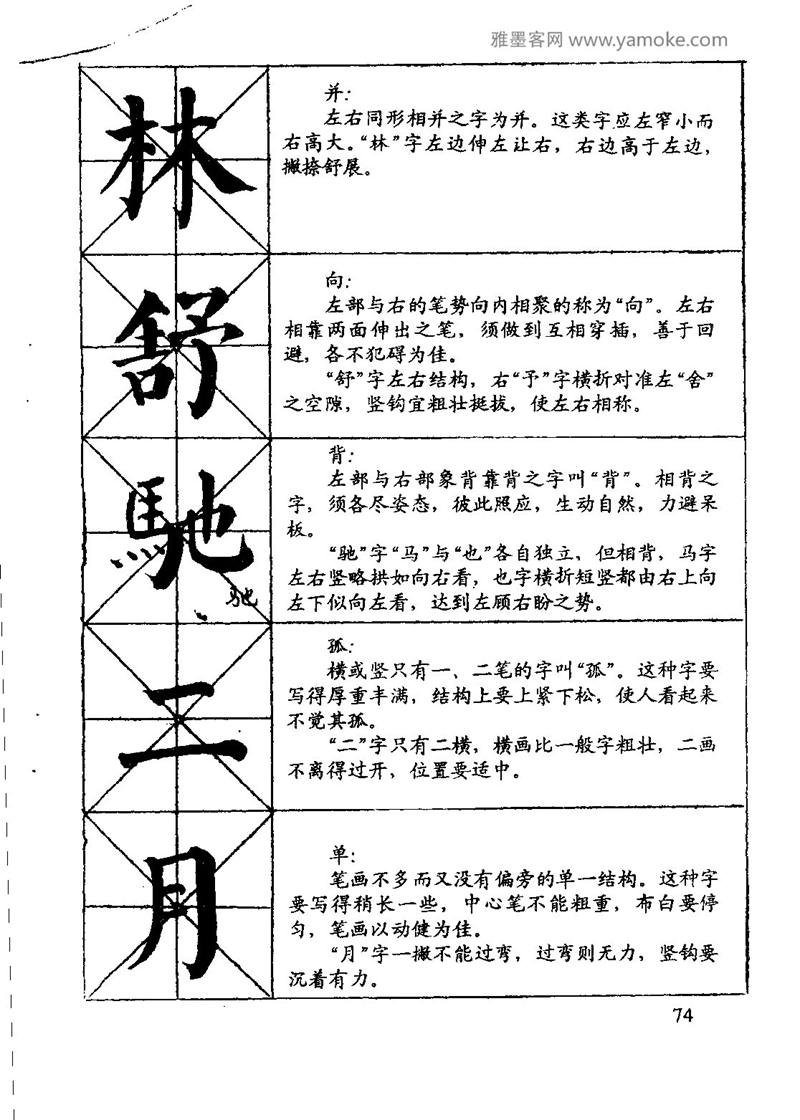 雅墨客网 www.yamoke.com
林
并：
左右同形相并之字为并。这类字应左窄小而
右高大。“林”字左边伸左让右，右边高于左边，
撇捺舒展。
舒
向：
左部与右的笔势向内相聚的称为“向”。左右
相靠两面伸出之笔，须做到互相穿插，善于回
避，各不犯碍为佳。
“舒”字左右结构，右“予”字横折对准左“舍”
之空隙，竖钩宜粗壮挺拔，使左右相称。
馳
驰
背：
左部与右部象背靠背之字叫“背”。相背之
字，须各尽姿态，彼此照应，生动自然，力避呆
板。
“驰”字“马”与“也”各自独立，但相背，马字
左右竖略拱如向右看，也字横折短竖都由右上向
左下似向左看，达到左顾右盼之势。
二
孤：
横或竖只有一、二笔的字叫“孤”。这种字要
写得厚重丰满，结构上要上紧下松，使人看起来
不觉其孤。
“二”字只有二横，横画比一般字粗壮，二画
不离得过开，位置要适中。
月
单：
笔画不多而又没有偏旁的单一结构。这种字
要写得稍长一些，中心笔不能粗重，布白要停
匀，笔画以动健为佳。
“月”字一撇不能过弯，过弯则无力，竖钩要
沉着有力。
74